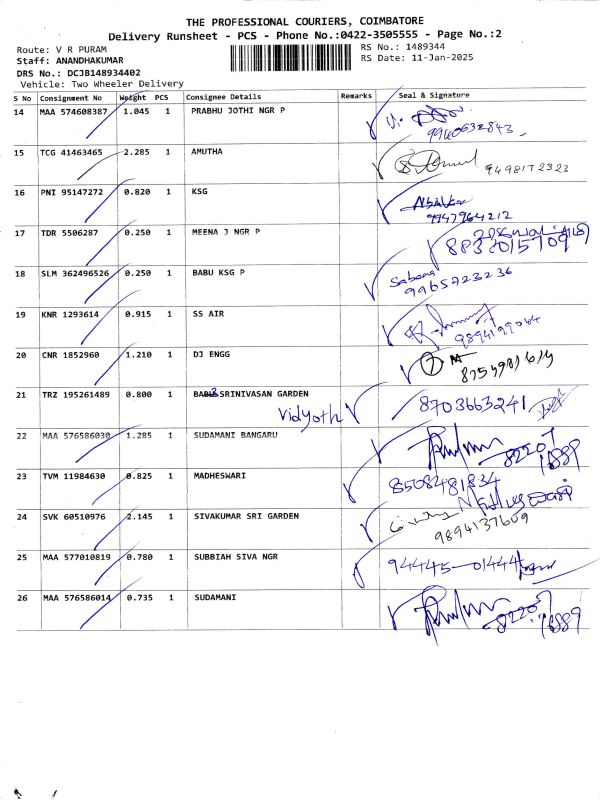 THE PROFESSIONAL COURIERS, COIMBATORE
Delivery Runsheet - PCS - Phone No.:0422-3505555 - Page No.:2
Route: V R PURAM
RS No.: 1489344
Staff: ANANDHAKUMAR
RS Date: 11-Jan-2025
DRS No.: DCJB148934402
Vehicle: Two Wheeler Delivery
S No Consignment No Weight PCS Consignee Details Remarks Seal & Signature
14 MAA 574608387 1.045 1 PRABHU JOTHI NGR P
9940632843
15 TCG 41463465 2.285 1 AMUTHA
9498172323
16 PNI 95147272 0.820 1 KSG
9947964212
17 TDR 5506287 0.250 1 MEENA J NGR P
18 SLM 362496526 0.250 1 BABU KSG P
Sabana
9965723236
19 KNR 1293614 0.915 1 SS AIR
20 CNR 1852960 1.210 1 DJ ENGG
21 TRZ 195261489 0.800 1 SRINIVASAN GARDEN
Vidyoth 8703663241
22 MAA 576586030 1.285 1 SUDAMANI BANGARU
82207
16889
23 TVM 11984630 0.825 1 MADHESWARI
8508481834
24 SVK 60510976 2.145 1 SIVAKUMAR SRI GARDEN
9894137609
25 MAA 577010819 0.780 1 SUBBIAH SIVA NGR
94445-01444
26 MAA 576586014 0.735 1 SUDAMANI
82207
16889